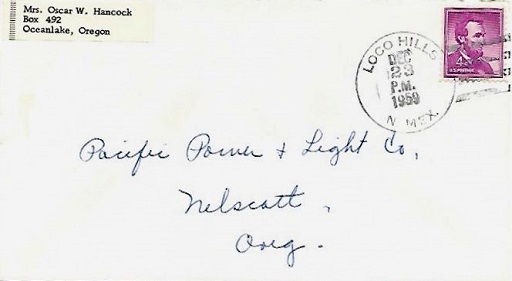 Mrs. Oscar W. Hancock
Box 492
Oceanlake, Oregon
LOCO HILLS
DEC
23
P.M.
1959
N. MEX.
4¢
U.S. POSTAGE
Pacific Power & Light Co,
Nelscott,
Oreg.